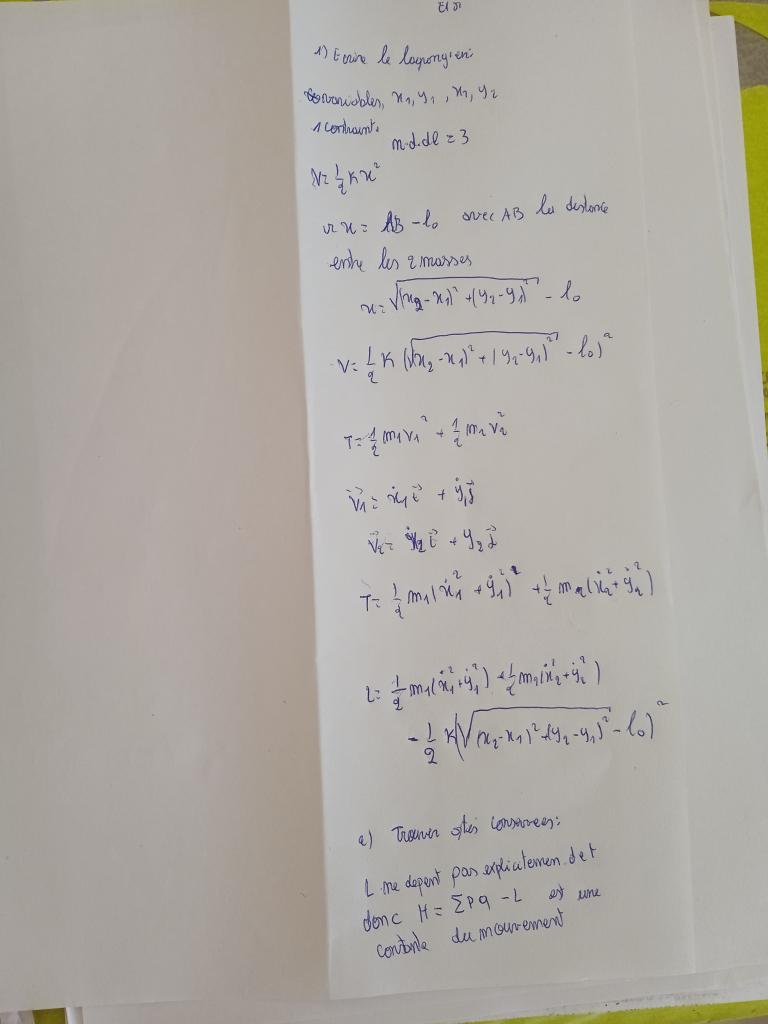 1) Ecrire le lagrangien:
variables, x₁, y₁, x₂, y₂
1 contraint.
n.d.dl = 3
V = 1/2 K x²
x = AB - l₀ avec AB la distance
entre les 2 masses
x = √((x₂-x₁)² + (y₂-y₁)²) - l₀
V = 1/2 K (√((x₂-x₁)² + (y₂-y₁)²) - l₀)²
T = 1/2 m₁ v₁² + 1/2 m₂ v₂²
v⃗₁ = ẋ₁ i⃗ + ẏ₁ j⃗
v⃗₂ = ẋ₂ i⃗ + y₂ j⃗
T = 1/2 m₁ (ẋ₁² + ẏ₁²)² + 1/2 m₂ (ẋ₂² + ẏ₂²)
L = 1/2 m₁ (ẋ₁² + ẏ₁²) + 1/2 m₂ (ẋ₂² + ẏ₂²)
- 1/2 K (√((x₂-x₁)² + (y₂-y₁)²) - l₀)²
2) Trouver qtés conservees:
L ne depent pas explicitemen de t
donc H = Σ p q - L est une
du mouvement